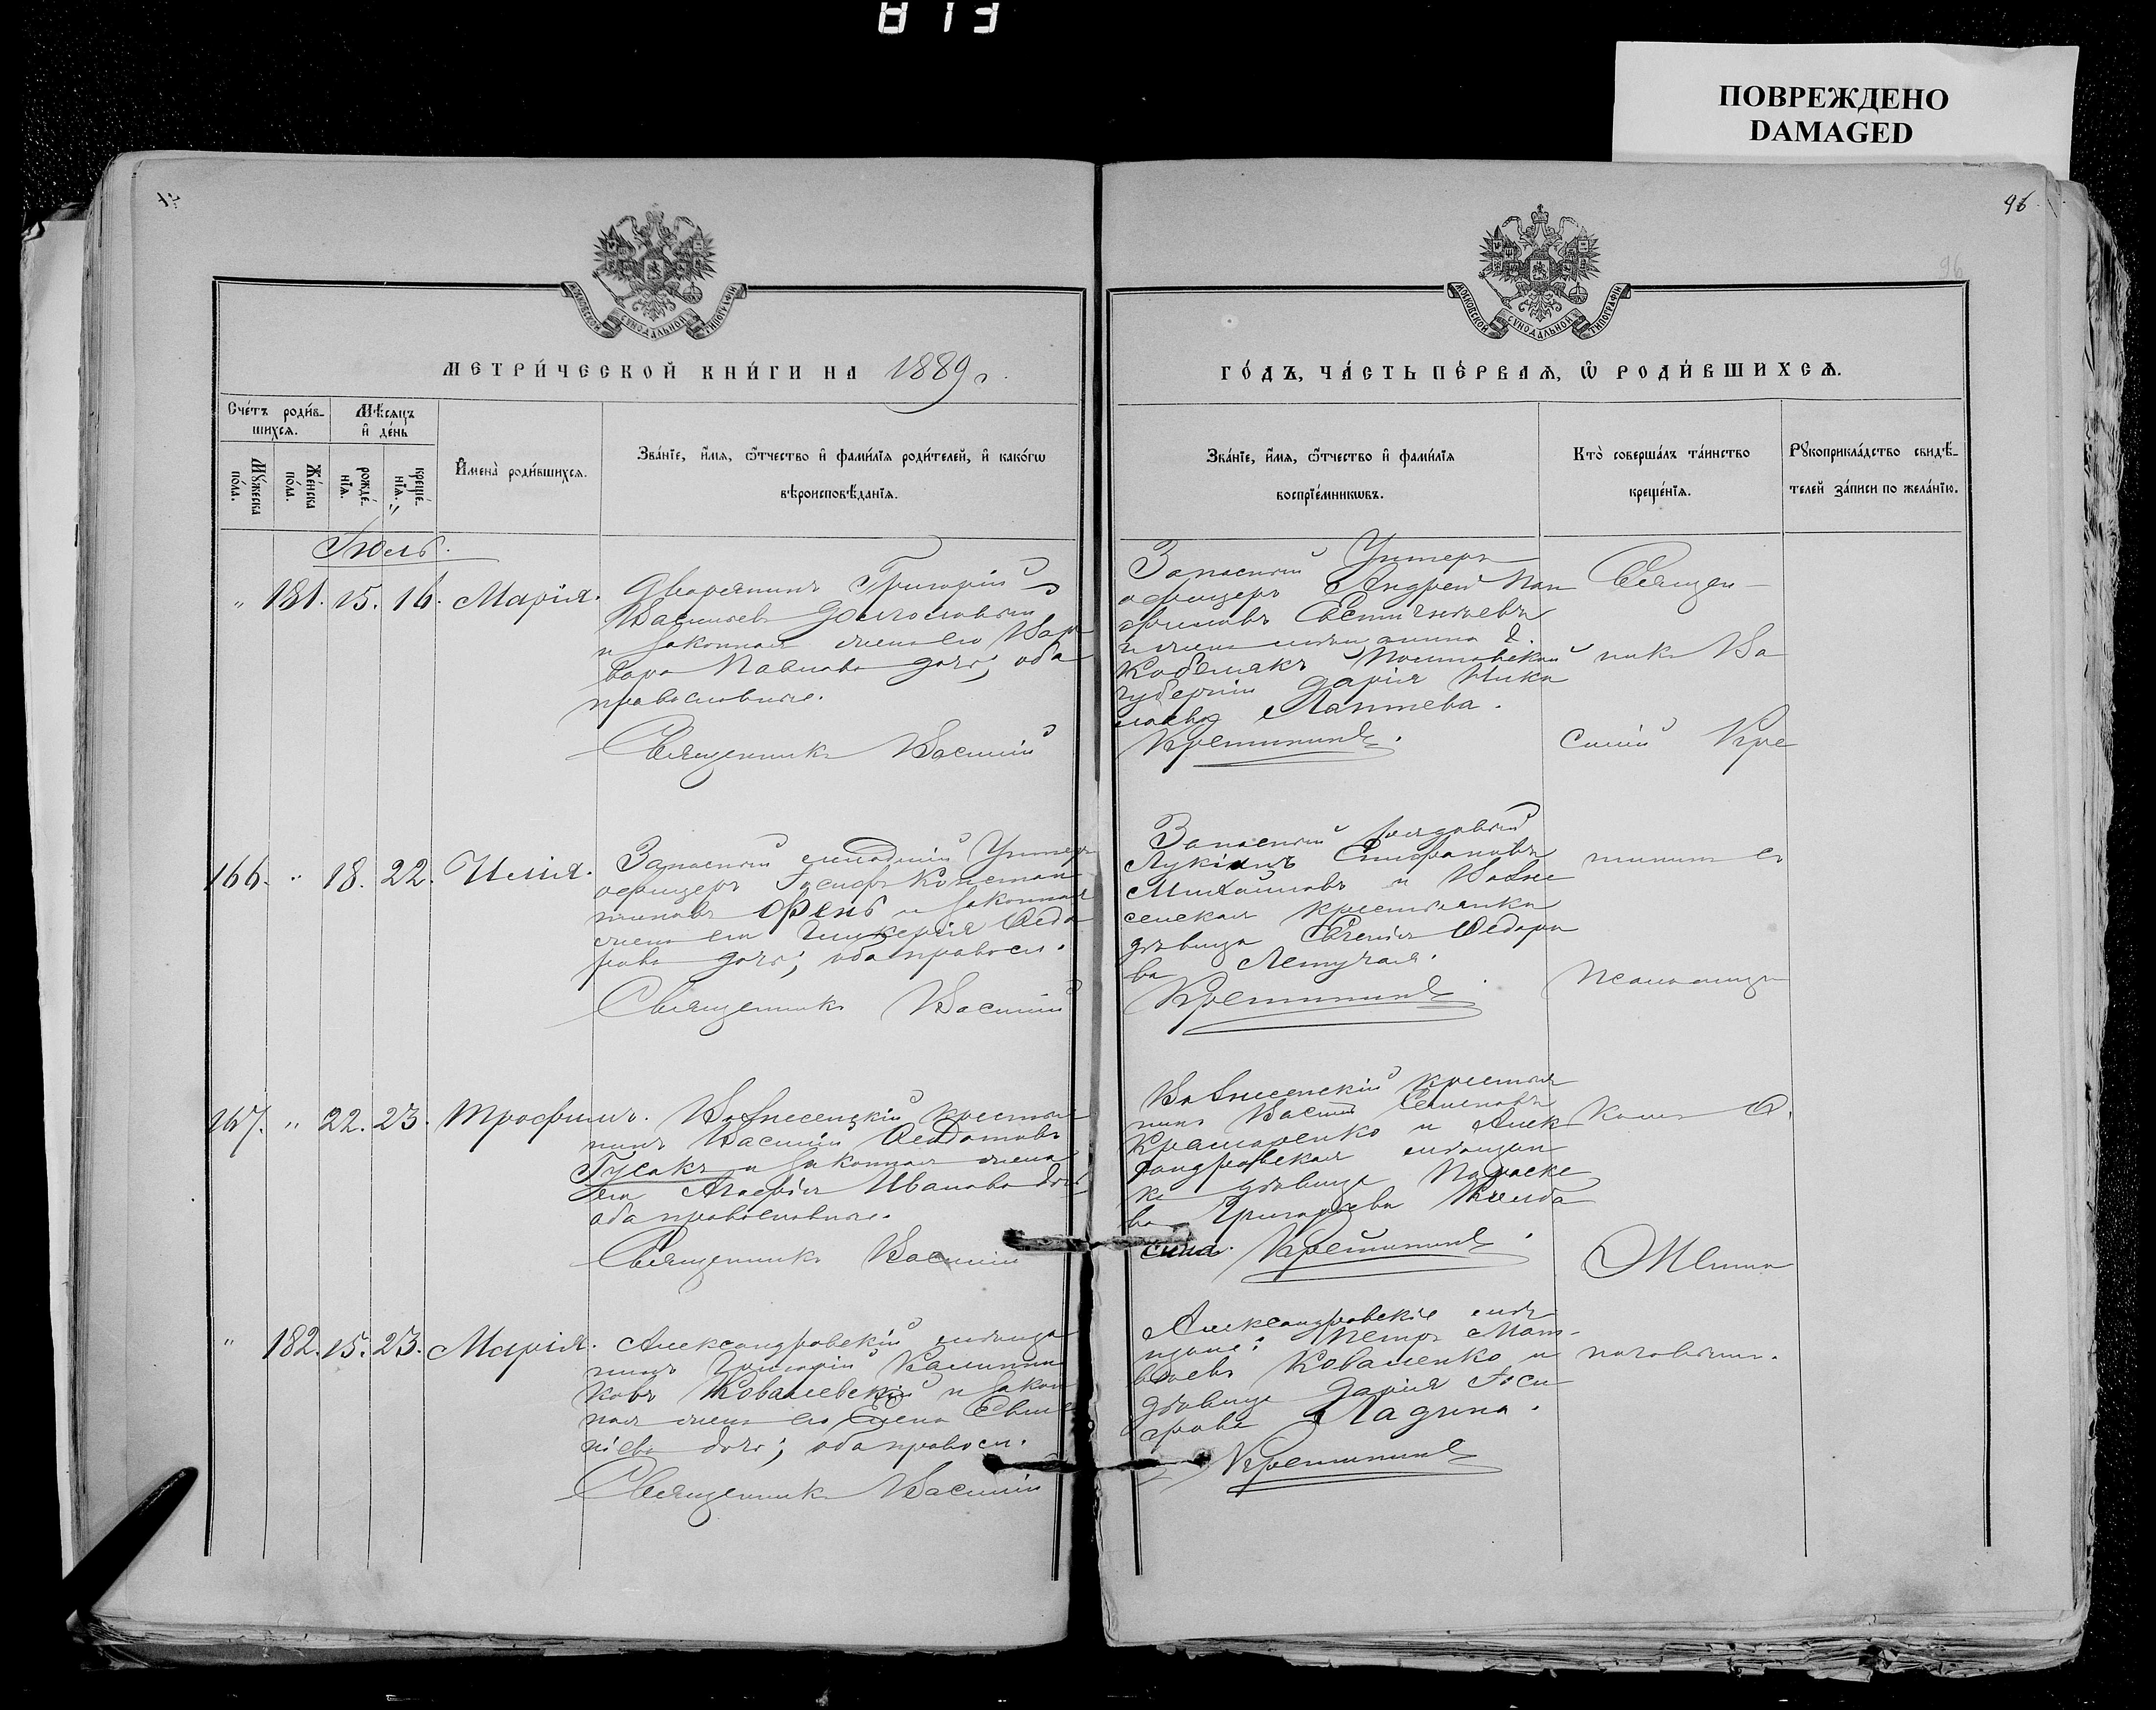 813
ПОВРЕЖДЕНО
DAMAGED
96.
96
МОСКОВСКОЙ СѴНОДАЛЬНОЙ ТИПОГРАФІИ
МОСКОВСКОЙ СѴНОДАЛЬНОЙ ТИПОГРАФІИ
МЕТРИ́ЧЕСКОЙ КНИ́ГИ НА 1889 г.
ГО́ДЪ, ЧА́СТЬ ПЕ́РВАѦ, Ѽ РОДИ́ВШИХСѦ.
Сче́тъ роди́в-
шихсѧ.
Мѣ́сѧцъ
и҆ де́нь
Мꙋ́жеска
по́ла.
Же́нска
по́ла.
рожде́-
нїѧ.
креще́-
нїѧ.
И҆мена̀ роди́вшихсѧ.
Зва́нїе, и҆́мѧ, ѻ҆́тчество и҆ фами́лїѧ роди́телей, и҆ како́гѡ
вѣроисповѣ́данїѧ.
Зва́нїе, и҆́мѧ, ѻ҆́тчество и҆ фами́лїѧ
воспрїе́мникѡвъ.
Кто̀ соверша́лъ та́инство
креще́нїѧ.
Рꙋкоприкла́дство свидѣ́-
телей за́писи по жела́нїю.
Іюль.
" 181. 15. 16. Марія.
Дворянинъ Григорій
Васильевъ
и законная жена его Вар
вара Павлова дочь; оба
православные.
Священникъ Василій
Запасный Унтеръ
офицеръ Андрей Пан
филовъ
и жена мѣщанина г.
Кобелякъ Полтавской
губерніи Дарія Нико
лаева Лаптева.
Крестининъ.
Священ-
никъ Ва
силій Кре
166. " 18. 22. Илія.
Запасный младшій Унтеръ
офицеръ Іосифъ Констан
тиновъ Орель и законная
жена его Гликерія Ѳедо
рова дочь; оба правосл.
Священникъ Василій
Запасный рядовый
Лукіанъ Стефановъ
Михайловъ и Возне
сенская крестьянка
дѣвица Евгенія Ѳедоро
ва Летучая.
Крестининъ
тининъ съ
Псаломщи
167. " 22. 23. Трофимъ.
Вознесенскій крестья
нинъ Василій Ѳеодотовъ
Гусакъ и законная жена
его Агафія Иванова дочь
оба православные.
Священникъ Василій
Вознесенскій крестья
нинъ Василій Семеновъ
Крамаренко и Алек
сандровская мѣщан
ка дѣвица Параске
ва Григорьева Колба
сина. Крестининъ.
комъ Ѳ.
" 182. 15. 23. Марія.
Александровскій мѣща
нинъ Григорій Калинни
ковъ Ковалевскій и закон
ная жена его Елена Евме
ніева дочь; оба правосл.
Священникъ Василій
Александровскіе мѣ
щане: Петръ Мат-
вѣевъ Коваленко и
дѣвица Дарія Іоси
фова Ладина.
Крестининъ